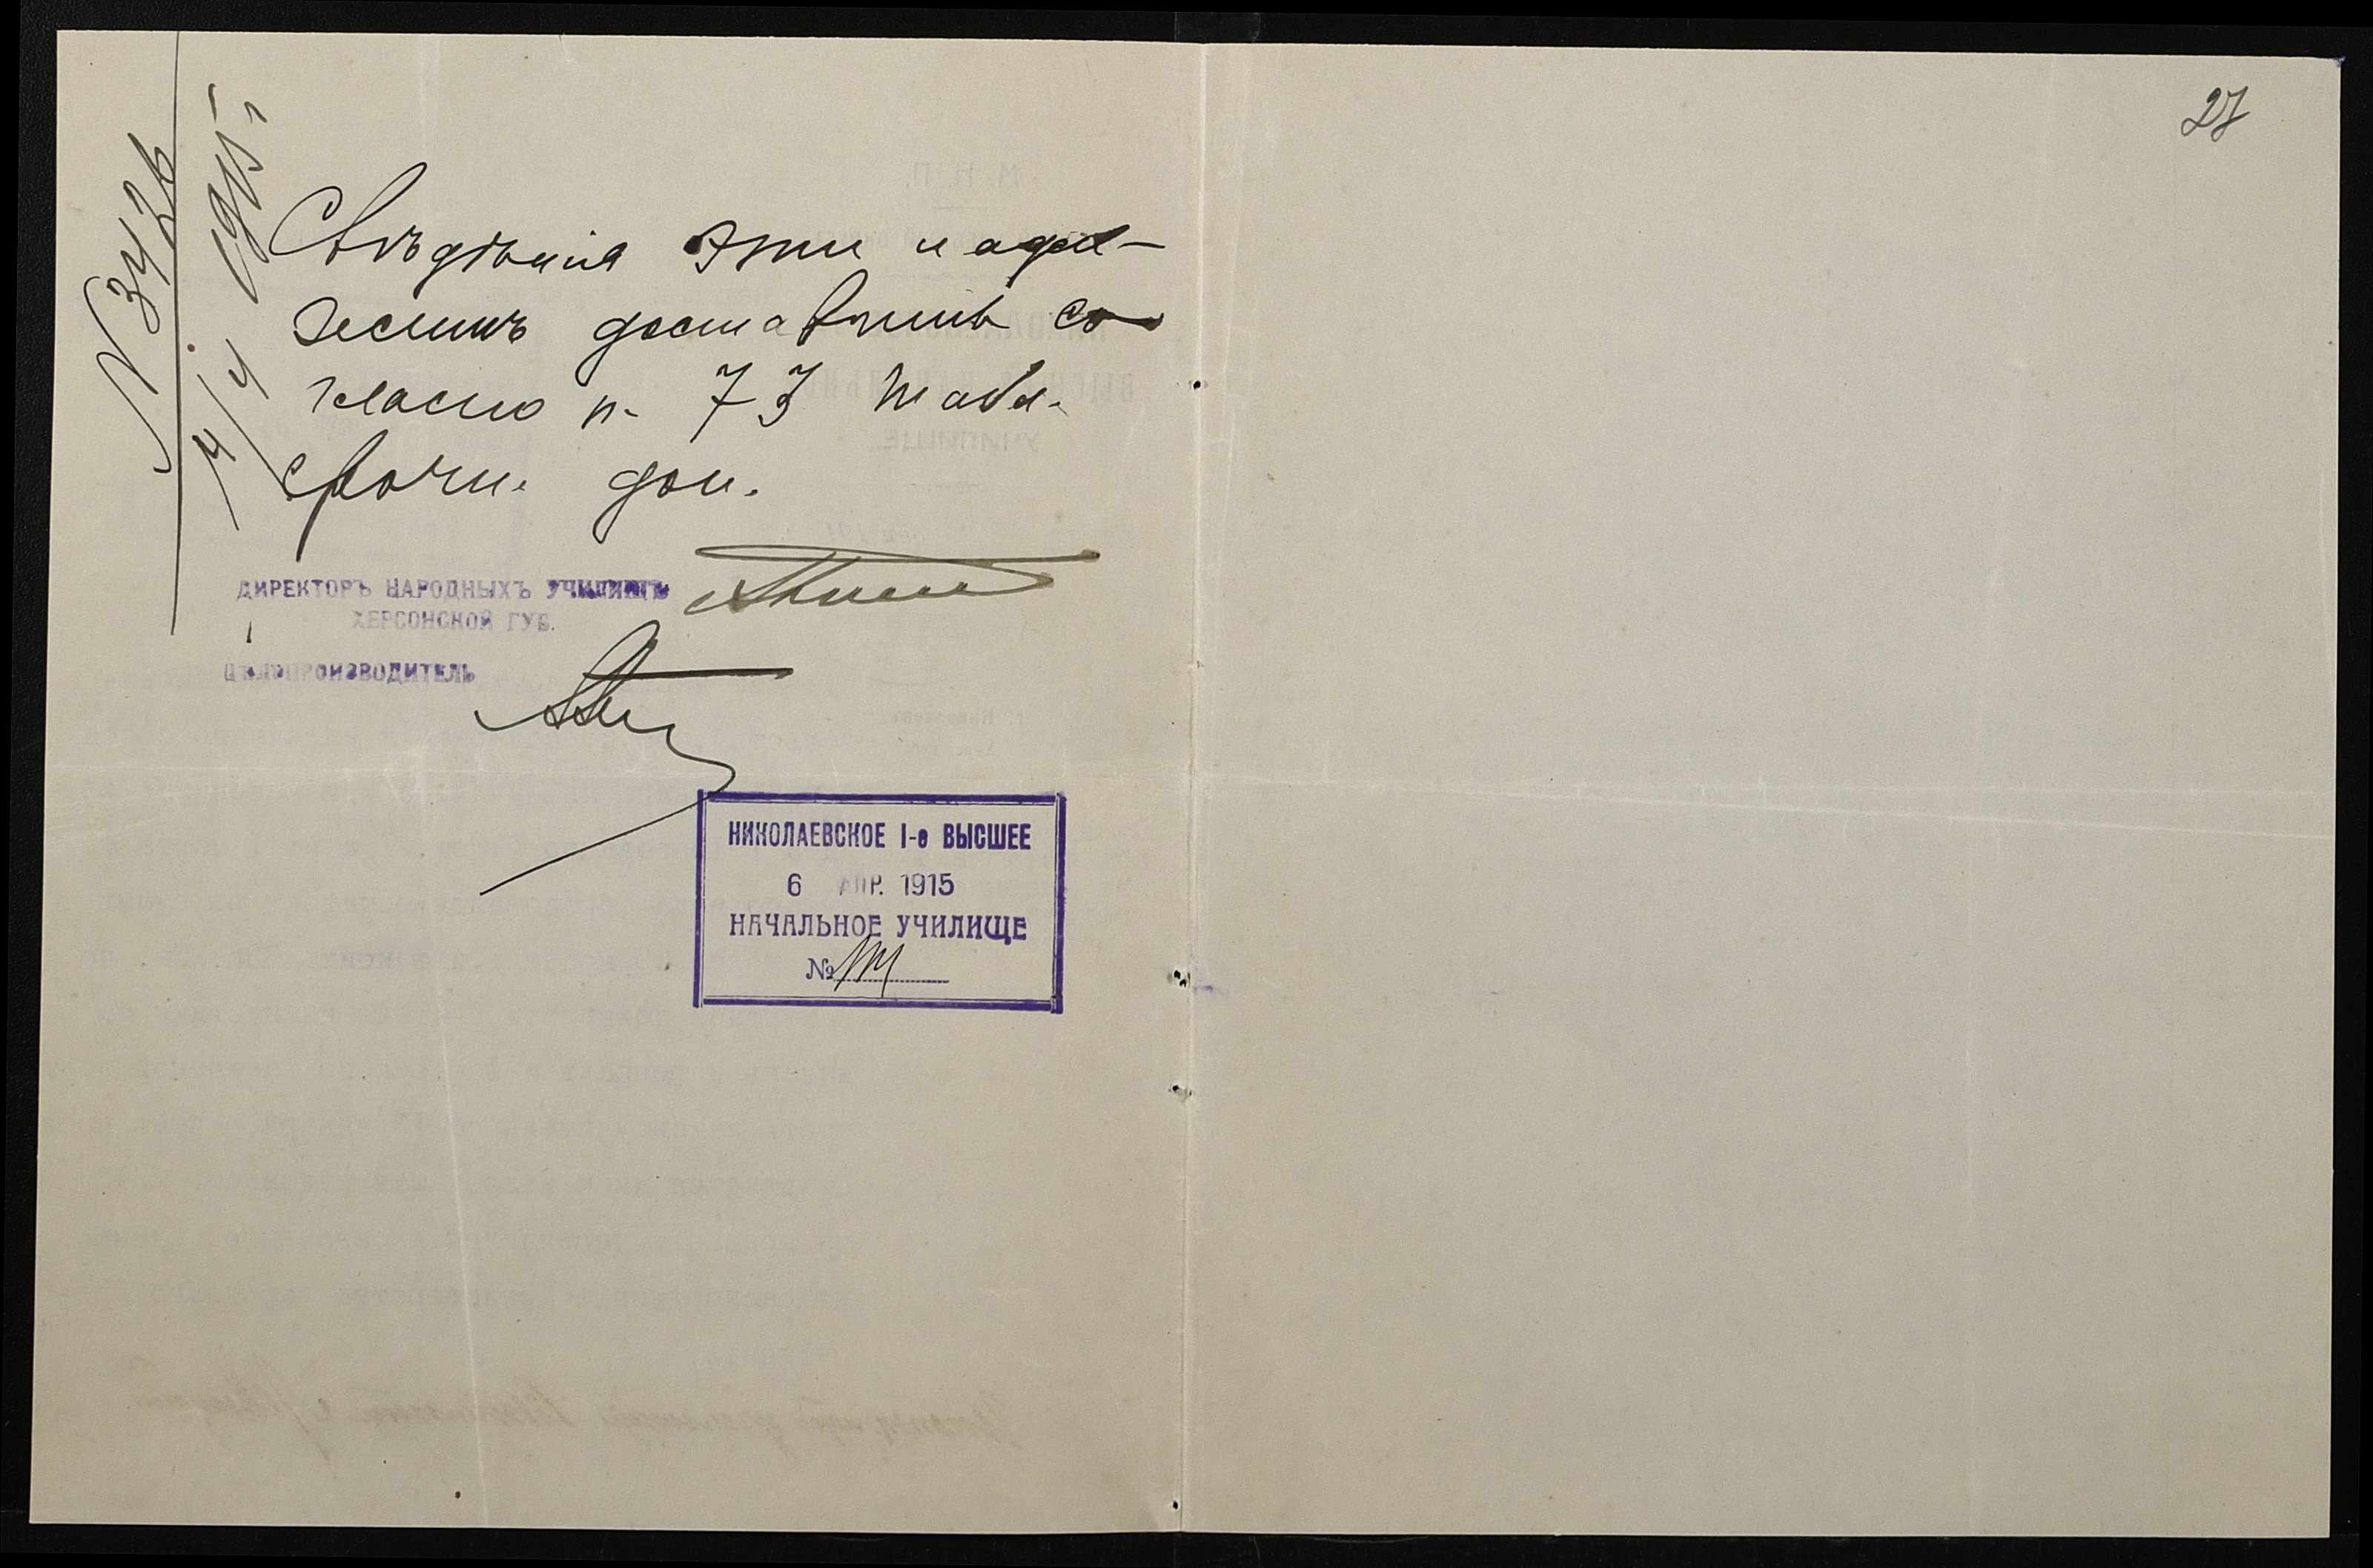 27
№ 3426
4/4 1915 г.
Свѣдѣнія эти надл-
жситъ доставить со-
гласно п. 73 табл.
срочн. дон.
ДИРЕКТОРЪ НАРОДНЫХЪ УЧИЛИЩЪ
ХЕРСОНСКОЙ ГУБ.
ДѢЛОПРОИЗВОДИТЕЛЬ
НИКОЛАЕВСКОЕ I-е ВЫСШЕЕ
6 АПР. 1915
НАЧАЛЬНОЕ УЧИЛИЩЕ
№